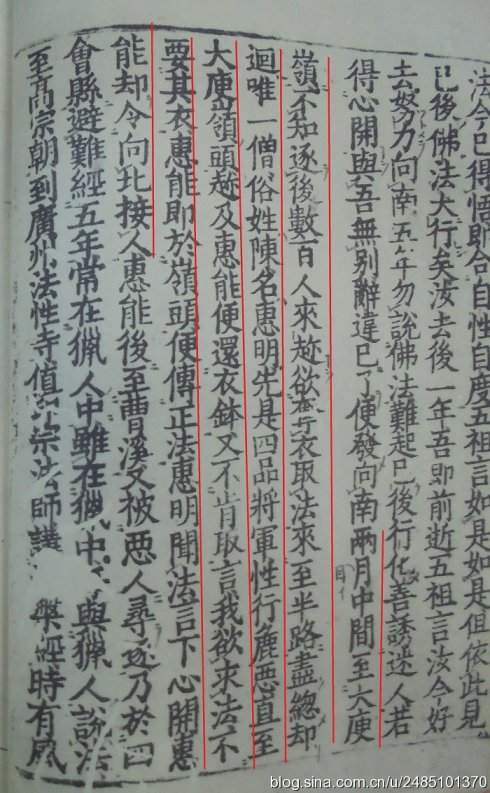 法今已得悟即合自性自度五祖言如是如是但依此見
已後佛法大行矣汝去後一年吾即前逝五祖言汝今好
去努力向南五年勿說佛法難起已後行化善誘迷人若
得心開與吾無別辭違已了便發向南兩月中間至大庾
嶺不知逐後數百人來趂欲奪衣取法來至半路盡總却
迴唯一僧俗姓陳名惠明先是四品將軍性行麁悪直至
大庾嶺頭趂及惠能便還衣鉢又不肯取言我欲求法不
要其衣惠能即於嶺頭便傳正法惠明聞法言下心開惠
能却令向北接人惠能後至曹溪又被悪人尋逐乃於四
會縣避難經五年常在獵人中雖在獵中與獵人說法
至高宗朝到廣州法性寺值宗法師講槃經時有風
blog.sina.com.cn/u/2485101370